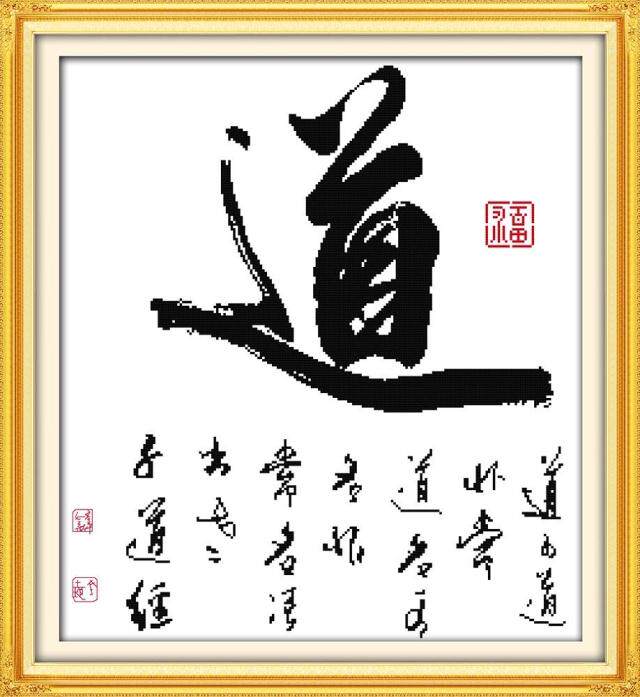 道
福
道可道
非常
道名可
名非
常名
子道經